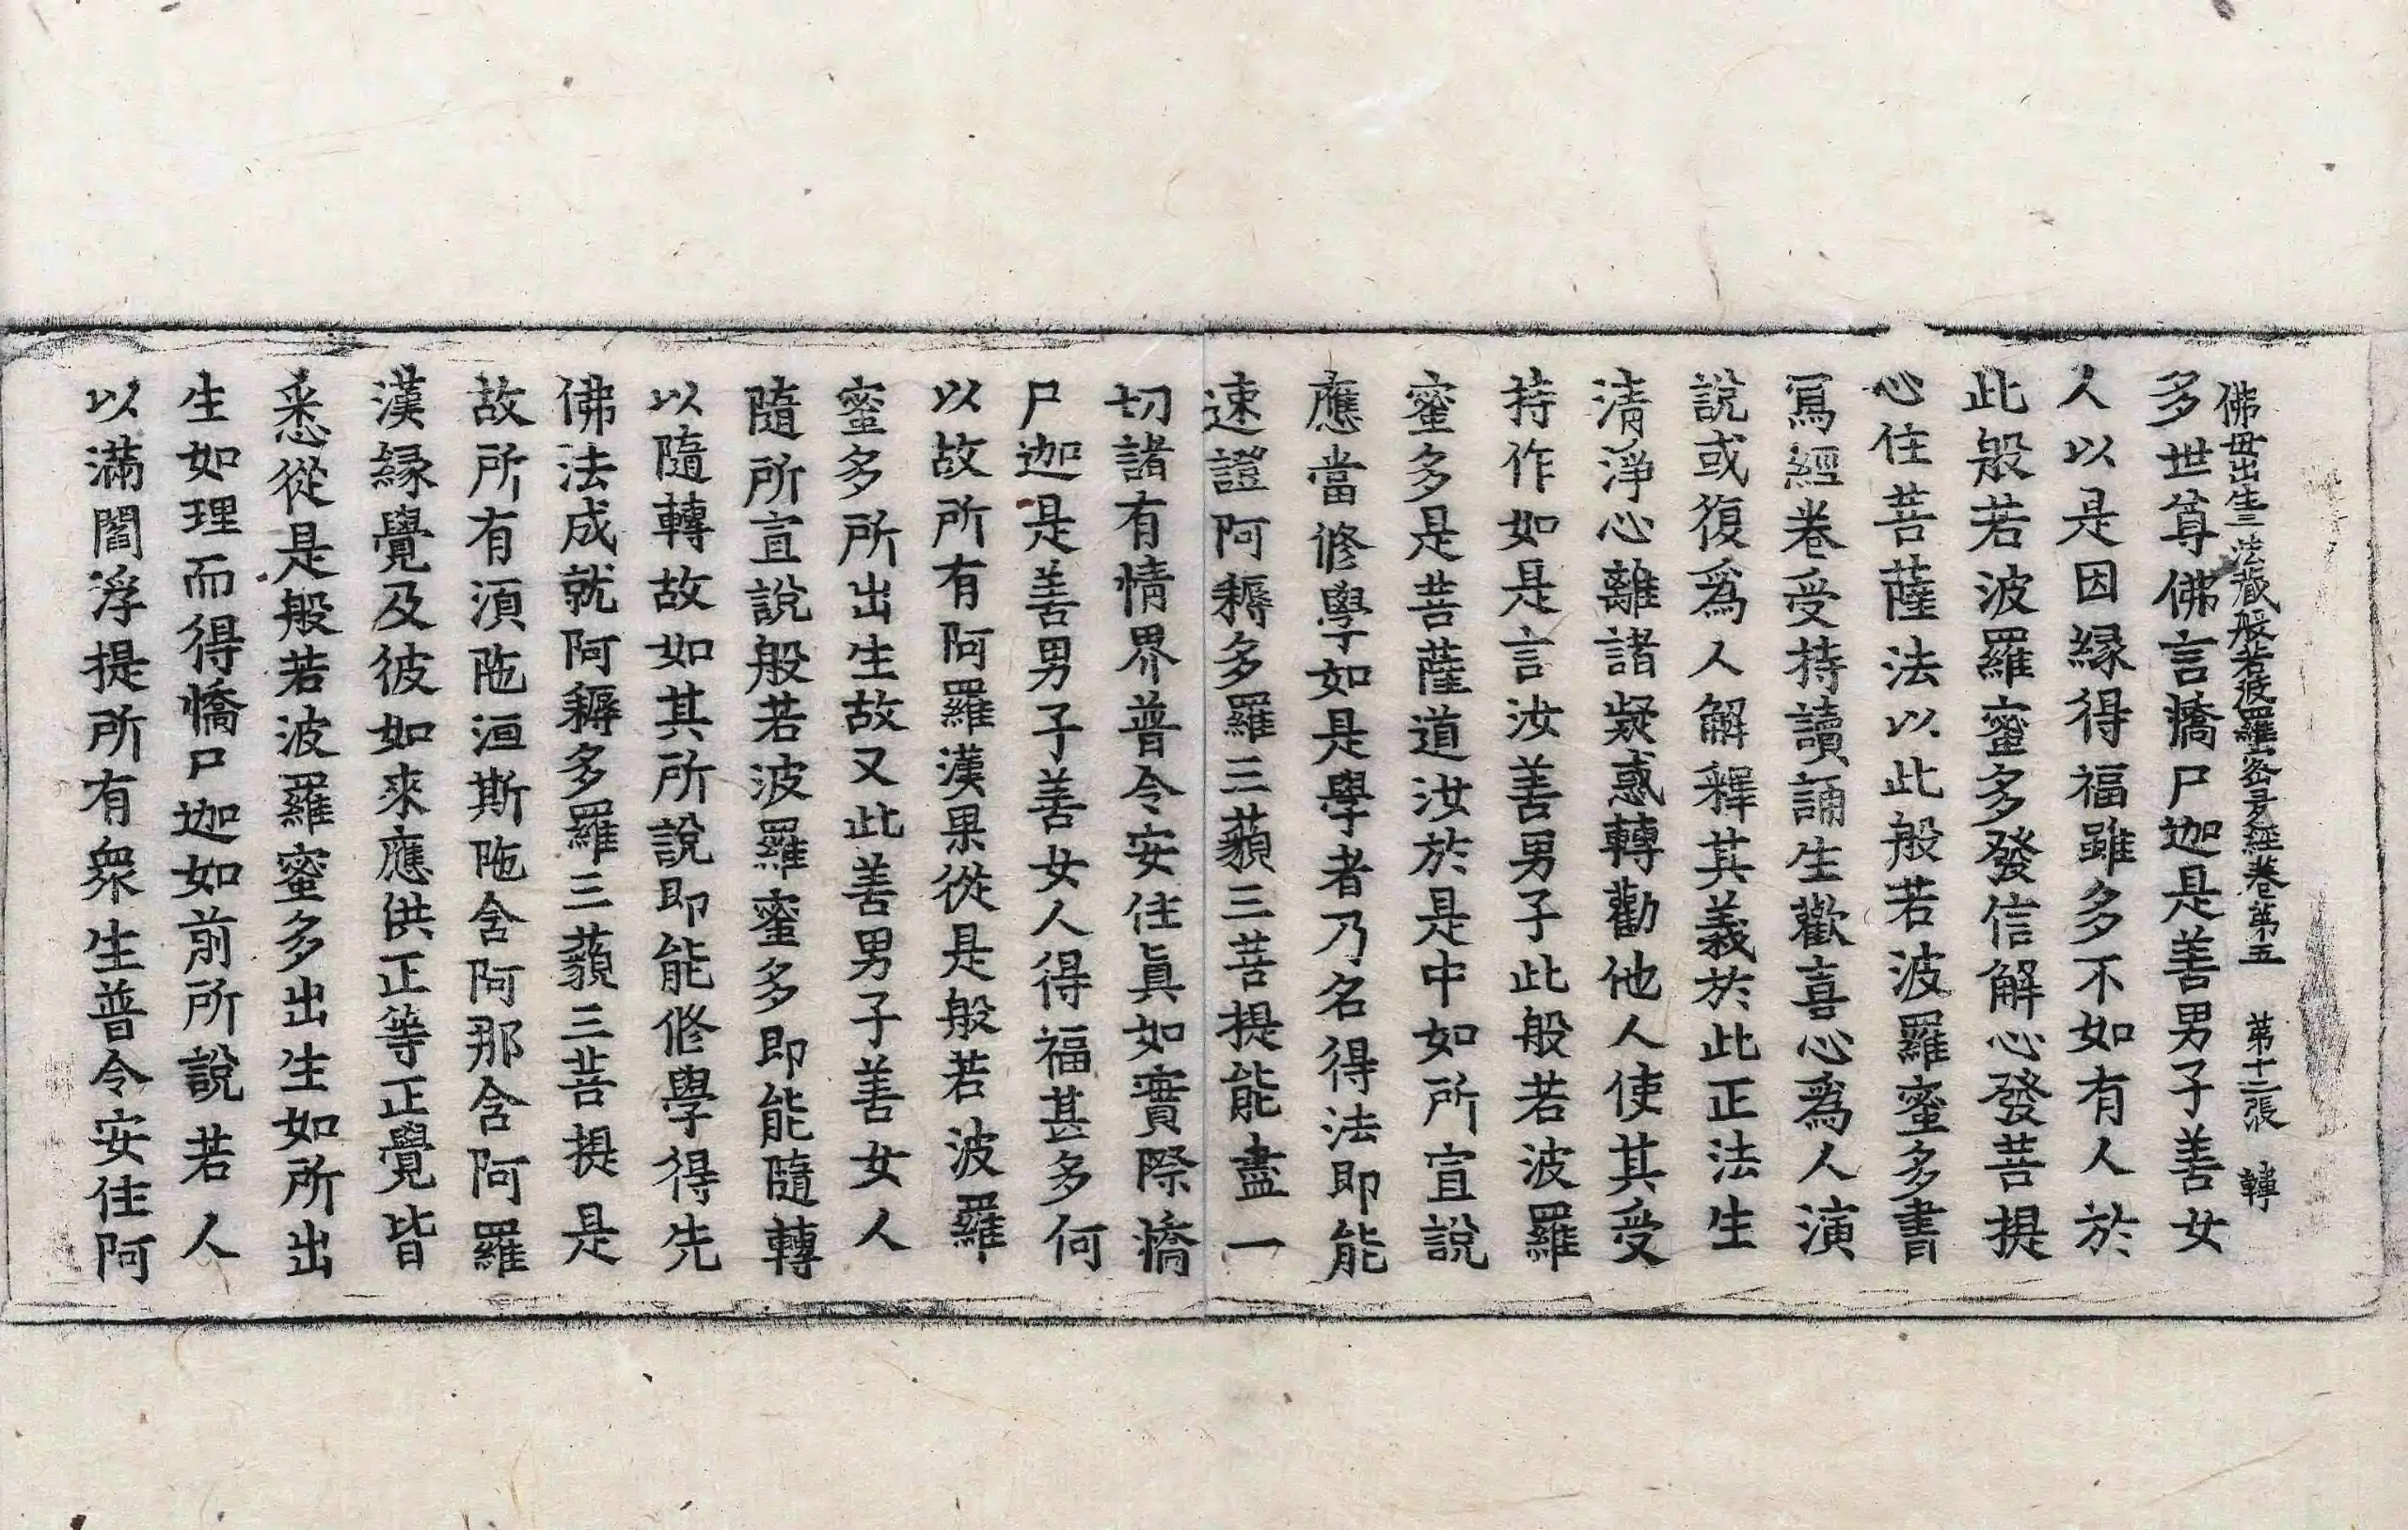 佛母出生三法藏般若波羅蜜多經卷第五　第十二張　轉
多世尊佛言憍尸迦是善男子善女
人以是因緣得福雖多不如有人於
此般若波羅蜜多發信解心發菩提
心住菩薩法以此般若波羅蜜多書
寫經卷受持讀誦生歡喜心爲人演
說或復爲人解釋其義於此正法生
清淨心離諸疑惑轉勸他人使其受
持作如是言汝善男子此般若波羅
蜜多是菩薩道汝於是中如所宣說
應當修學如是學者乃名得法即能
速證阿耨多羅三藐三菩提能盡一
切諸有情界普令安住眞如實際憍
尸迦是善男子善女人得福甚多何
以故所有阿羅漢果從是般若波羅
蜜多所出生故又此善男子善女人
隨所宣說般若波羅蜜多即能隨轉
以隨轉故如其所說即能修學得先
佛法成就阿耨多羅三藐三菩提是
故所有須陁洹斯陁含阿那含阿羅
漢緣覺及彼如來應供正等正覺皆
悉從是般若波羅蜜多出生如所出
生如理而得憍尸迦如前所說若人
以滿閻浮提所有衆生普令安住阿